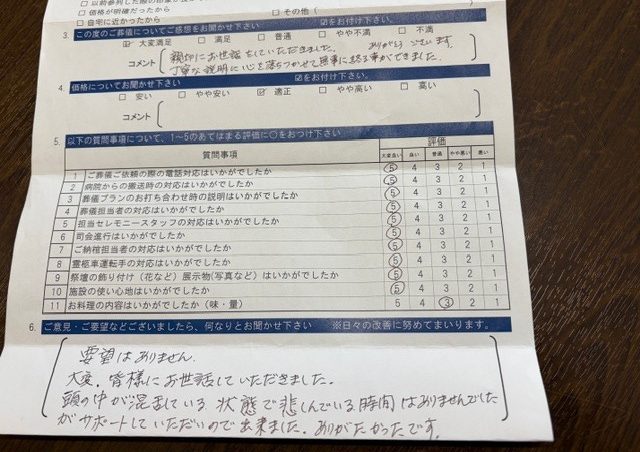 □ 価格が明確だったから □ その他（
□ 自宅に近かったから
3. この度のご葬儀についてご感想をお聞かせ下さい ☑をお付け下さい。
☑ 大変満足 □ 満足 □ 普通 □ やや不満 □ 不満
親切にお世話をしていただきました。 ありがとうございます。
コメント 丁寧な説明に心を落ちつかせて無事に終る事ができました。
4. 価格についてお聞かせ下さい ☑をお付け下さい。
□ 安い □ やや安い ☑ 適正 □ やや高い □ 高い
コメント
5. 以下の質問事項について、1～5のあてはまる評価に〇をおつけ下さい
質問事項 評価
大変良い 良い 普通 やや悪い 悪い
1 ご葬儀ご依頼の際の電話対応はいかがでしたか 5 4 3 2 1
2 病院からの搬送時の対応はいかがでしたか 5 4 3 2 1
3 葬儀プランのお打ち合わせ時の説明はいかがでしたか 5 4 3 2 1
4 葬儀担当者の対応はいかがでしたか 5 4 3 2 1
5 担当セレモニースタッフの対応はいかがでしたか 5 4 3 2 1
6 司会進行はいかがでしたか 5 4 3 2 1
7 ご納棺担当者の対応はいかがでしたか 5 4 3 2 1
8 霊柩車運転手の対応はいかがでしたか 5 4 3 2 1
9 祭壇の飾り付け（花など）展示物(写真など）はいかがでしたか 5 4 3 2 1
10 施設の使い心地はいかがでしたか 5 4 3 2 1
11 お料理の内容はいかがでしたか（味・量） 5 4 3 2 1
6. ご意見・ご要望などございましたら、何なりとお聞かせ下さい ※日々の改善に努めてまいります。
要望はありません
大変、皆様にお世話していただきました。
頭の中が混乱している状態で悲しんでいる時間はありませんでした
がサポートしていただいので出来ました。ありがたかったです。